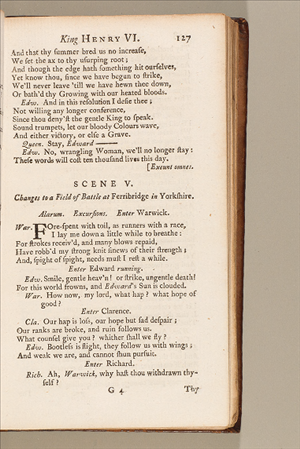 King HENRY VI. 127
And that thy ſummer bred us no increaſe,
We ſet the ax to thy uſurping root;
And though the edge hath ſomething hit ourſelves,
Yet know thou, ſince we have begun to ſtrike,
We'll never leave 'till we have hewn thee down,
Or bath'd thy Growing with our heated bloods.
Edw. And in this reſolution I defie thee;
Not willing any longer conference,
Since thou deny'ſt the gentle King to ſpeak.
Sound trumpets, let our bloody Colours wave,
And either victory, or elſe a Grave.
Queen. Stay, Edward ——
Edw. No, wrangling Woman, we'll no longer ſtay:
Theſe words will coſt ten thouſand lives this day.
[Exeunt omnes.
SCENE V.
Changes to a Field of Battle at Ferribridge in Yorkſhire.
Alarum. Excurſions. Enter Warwick.
War. FOre-ſpent with toil, as runners with a race,
I lay me down a little while to breathe:
For ſtrokes receiv'd, and many blows repaid,
Have robb'd my ſtrong knit ſinews of their ſtrength;
And, ſpight of ſpight, needs muſt I reſt a while.
Enter Edward running.
Edw. Smile, gentle heav'n! or ſtrike, ungentle death!
For this world frowns, and Edward's Sun is clouded.
War. How now, my lord, what hap? what hope of
good?
Enter Clarence.
Cla. Our hap is loſs, our hope but ſad deſpair;
Our ranks are broke, and ruin follows us.
What counſel give you? whither ſhall we fly?
Edw. Bootleſs is flight, they follow us with wings;
And weak we are, and cannot ſhun purſuit.
Enter Richard.
Rich. Ah, Warwick, why haſt thou withdrawn thy-
ſelf?
G 4 Thy